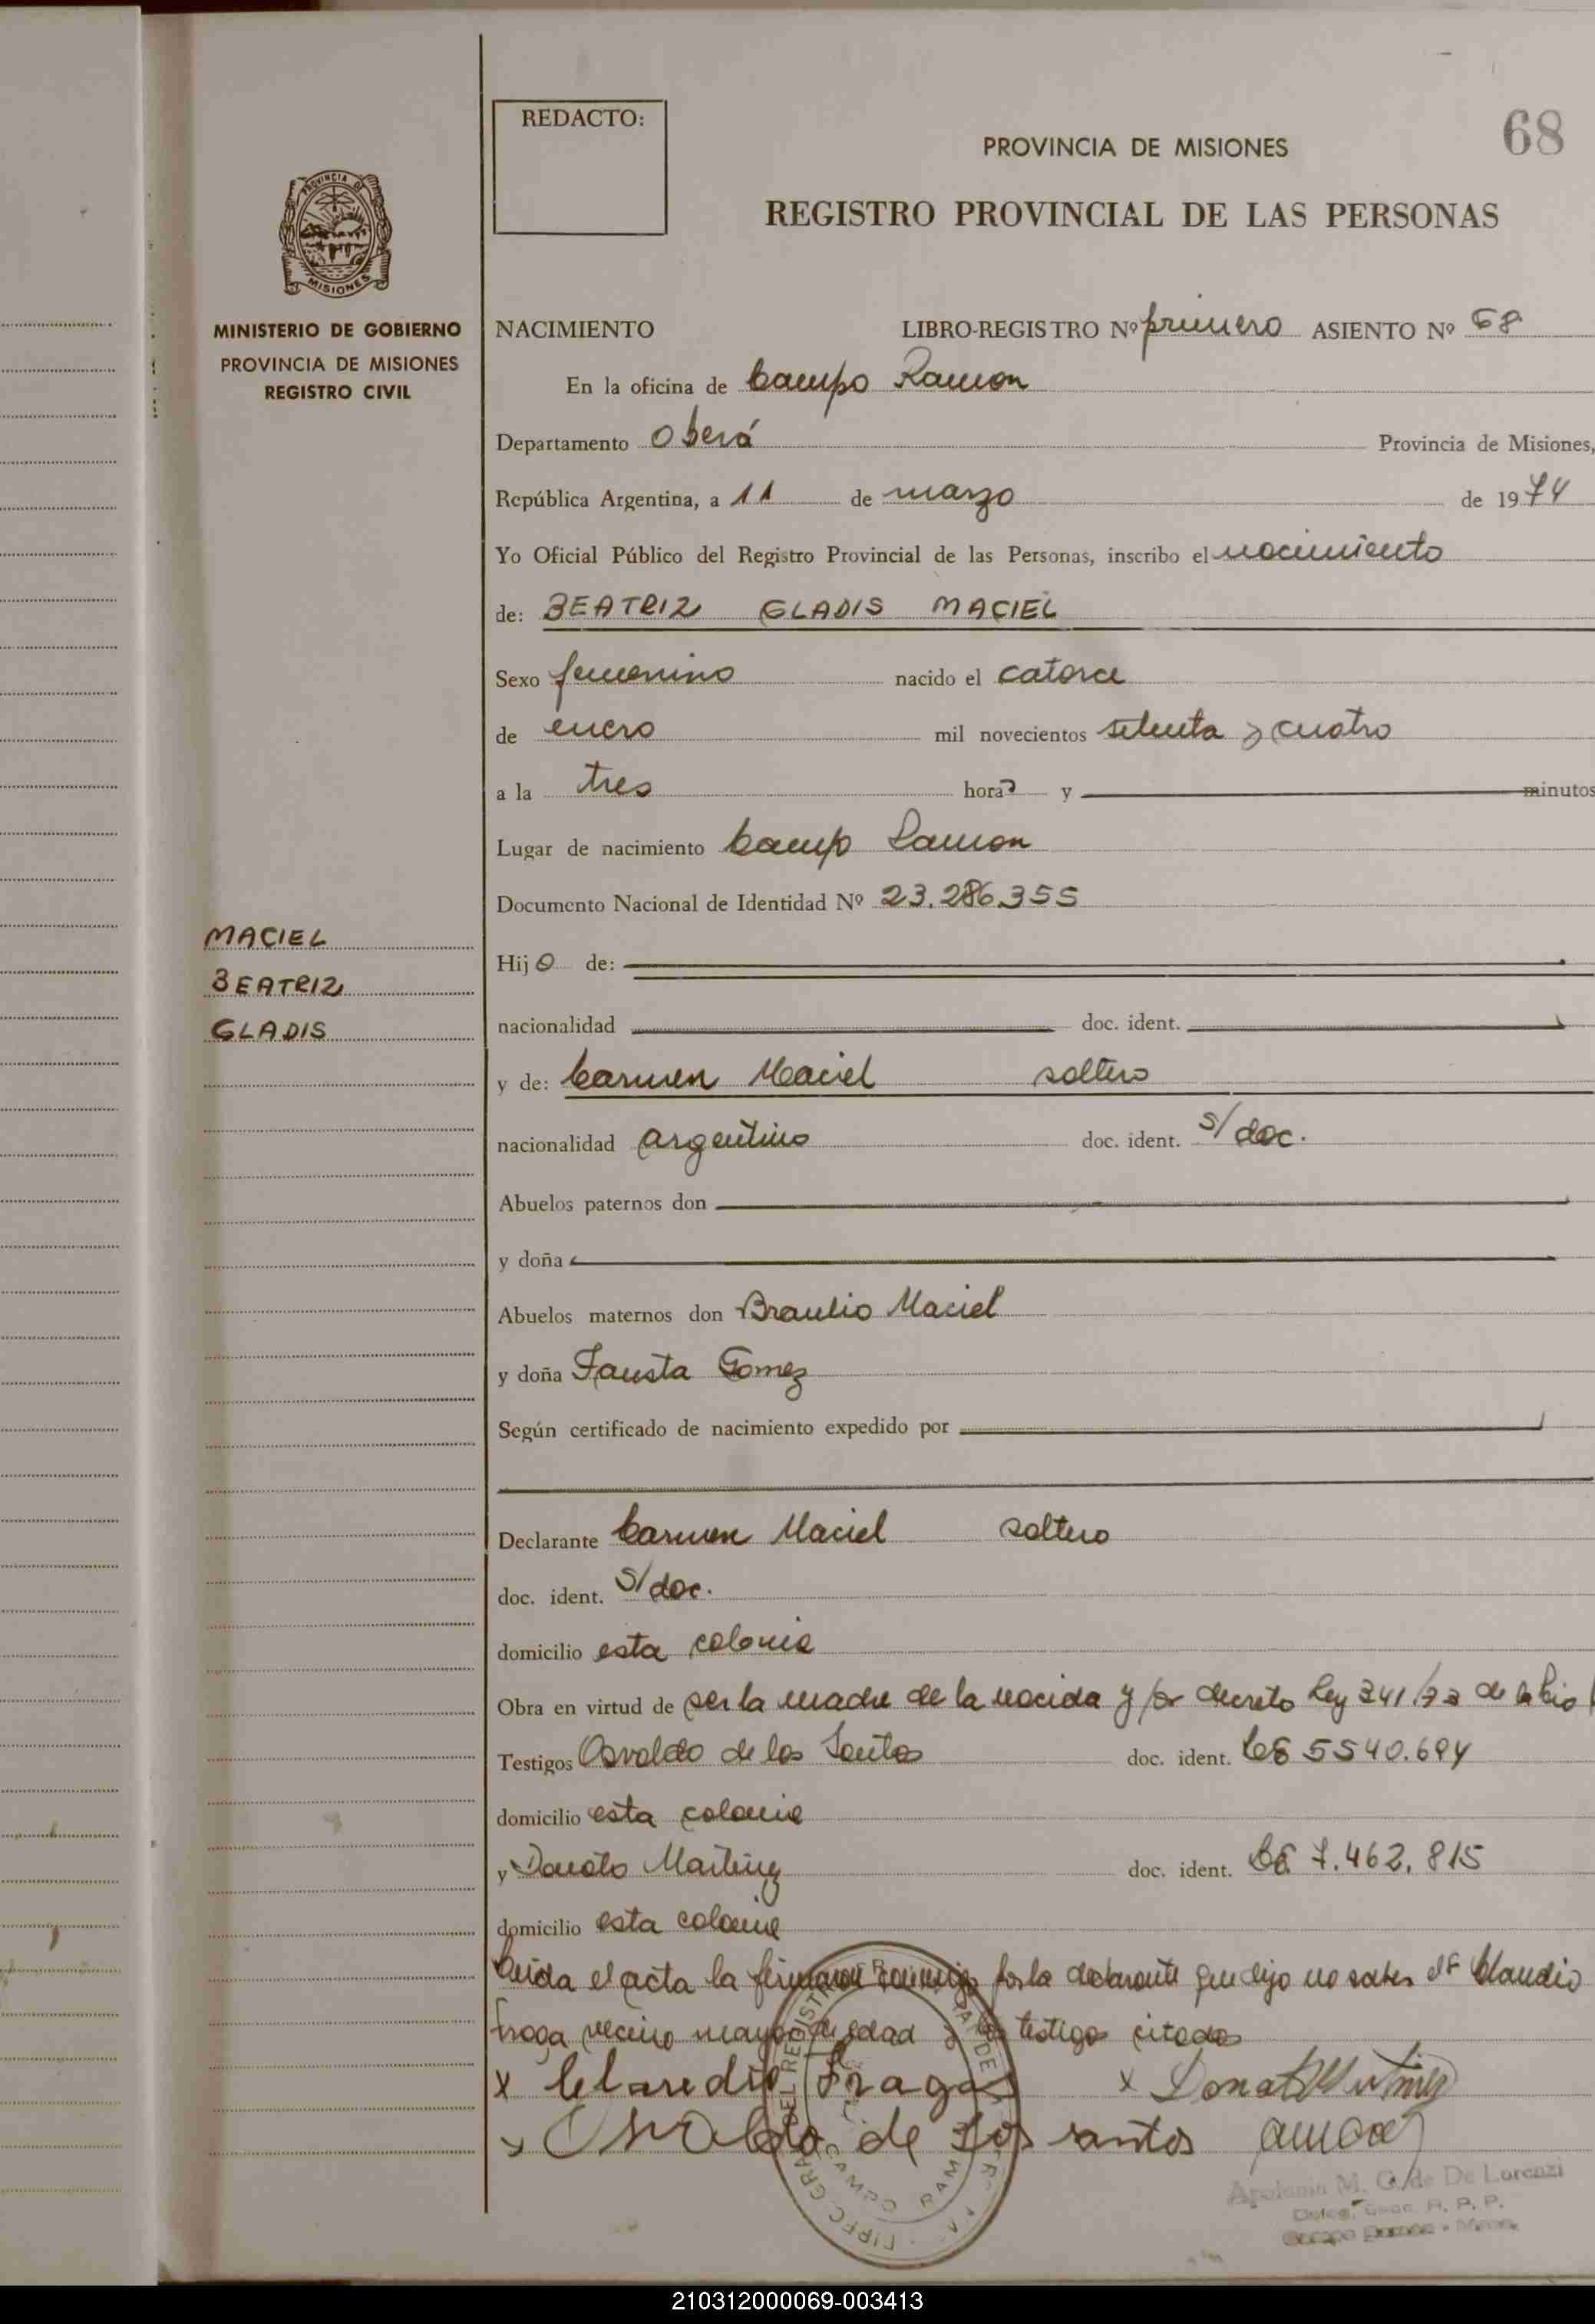 REDACTO:
PROVINCIA DE MISIONES
68
REGISTRO PROVINCIAL DE LAS PERSONAS
PROVINCIA DE
MISIONES
MINISTERIO DE GOBIERNO
PROVINCIA DE MISIONES
REGISTRO CIVIL
NACIMIENTO LIBRO-REGISTRO Nº primero ASIENTO Nº 68
En la oficina de Campo Ramon
Departamento Oberá Provincia de Misiones,
República Argentina, a 11 de marzo de 1974
Yo Oficial Público del Registro Provincial de las Personas, inscribo el nacimiento
de: BEATRIZ GLADIS MACIEL
Sexo femenino nacido el catorce
de enero mil novecientos setenta y cuatro
a la tres horas y minutos
Lugar de nacimiento Campo Ramon
Documento Nacional de Identidad Nº 23.286.355
MACIEL
BEATRIZ
GLADIS
Hija de:
nacionalidad doc. ident.
y de: Carmen Maciel soltera
nacionalidad argentina doc. ident. s/doc.
Abuelos paternos don
y doña
Abuelos maternos don Braulio Maciel
y doña Fausta Gomez
Según certificado de nacimiento expedido por
Declarante Carmen Maciel soltera
doc. ident. s/doc.
domicilio esta colonia
Obra en virtud de ser la madre de la nacida y por decreto Ley 341/73 de la
Testigos Osvaldo de los Santos doc. ident. 5540.694
domicilio esta colonia
y Donato Martinez doc. ident. 7.462.815
domicilio esta colonia
Leida el acta la firmaron conmigo por la declarante que dijo no saber Claudio
Fraga vecino mayor de edad y los testigos citados
x Claudio Fraga x Donato Martinez
x Osvaldo de los santos
CAMPO RAMON
Apolonia M. G. de De Lorenzi
R. P. P.
Campo Ramon - Mnes.
210312000069-003413